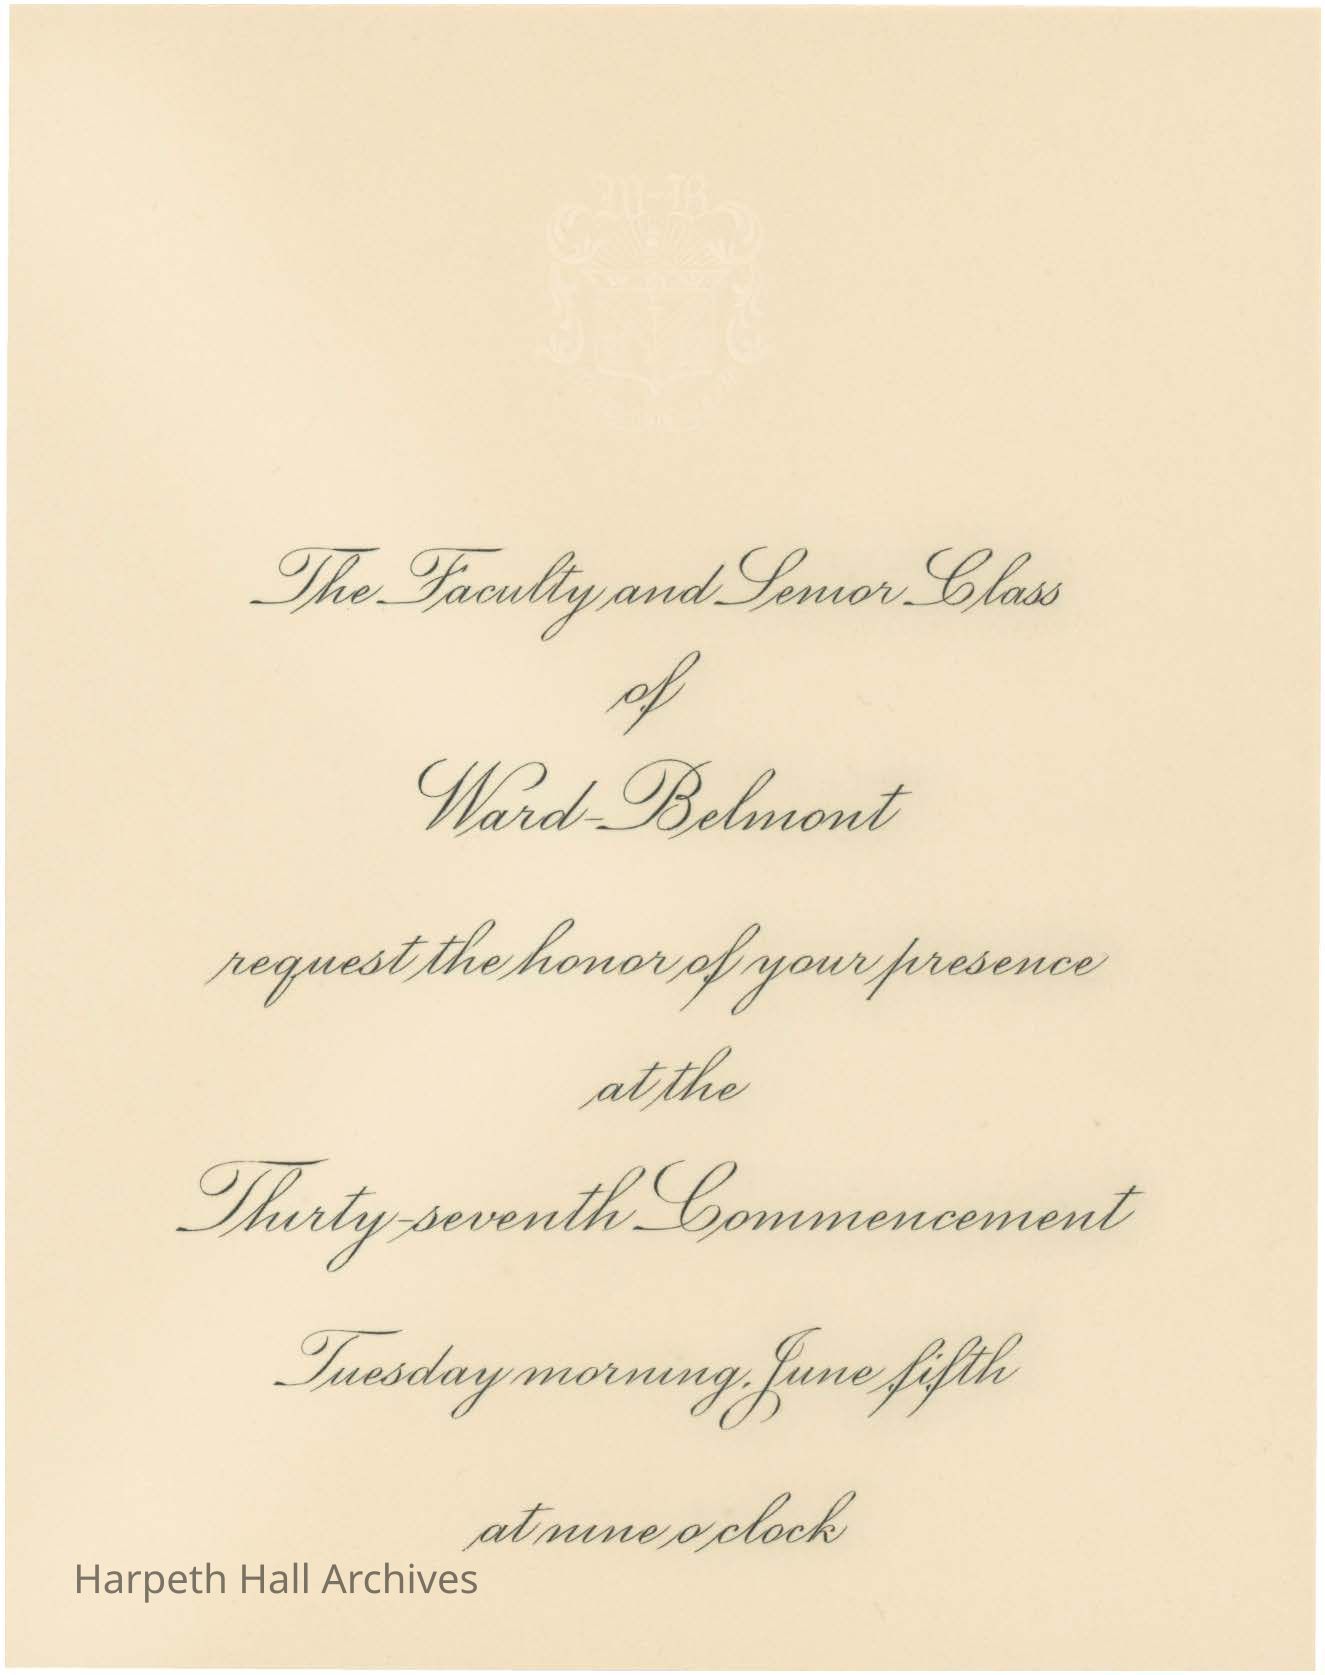 W-B
The Faculty and Senior Class
of
Ward-Belmont
request the honor of your presence
at the
Thirty-seventh Commencement
Tuesday morning, June fifth
at nine o'clock
Harpeth Hall Archives